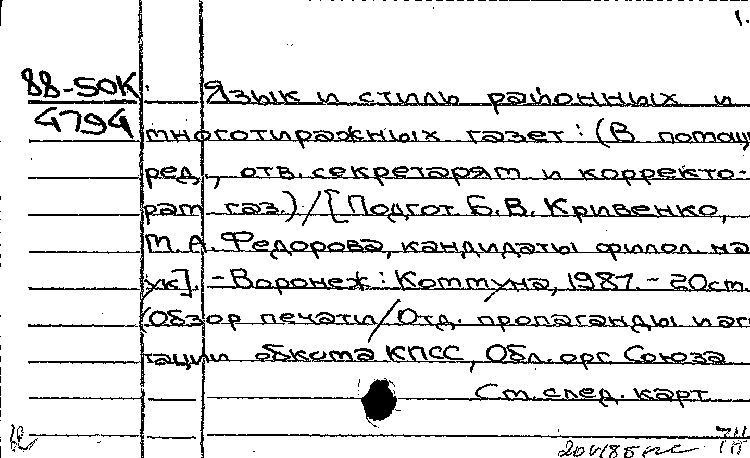 1.
88-50К Язык и стиль районных и
4794 многотиражных газет: (В помощ
ред., отв. секретарям и корректо-
рам газ.)/[Подгот. Б.В. Кривенко,
М.А. Федорова, кандидаты филол. на
ук]. -Воронеж: Коммуна, 1987. - 20см.
(Обзор печати/Отд. пропаганды и аг
тации обкома КПСС, Обл. орг. Союза
См. след. карт